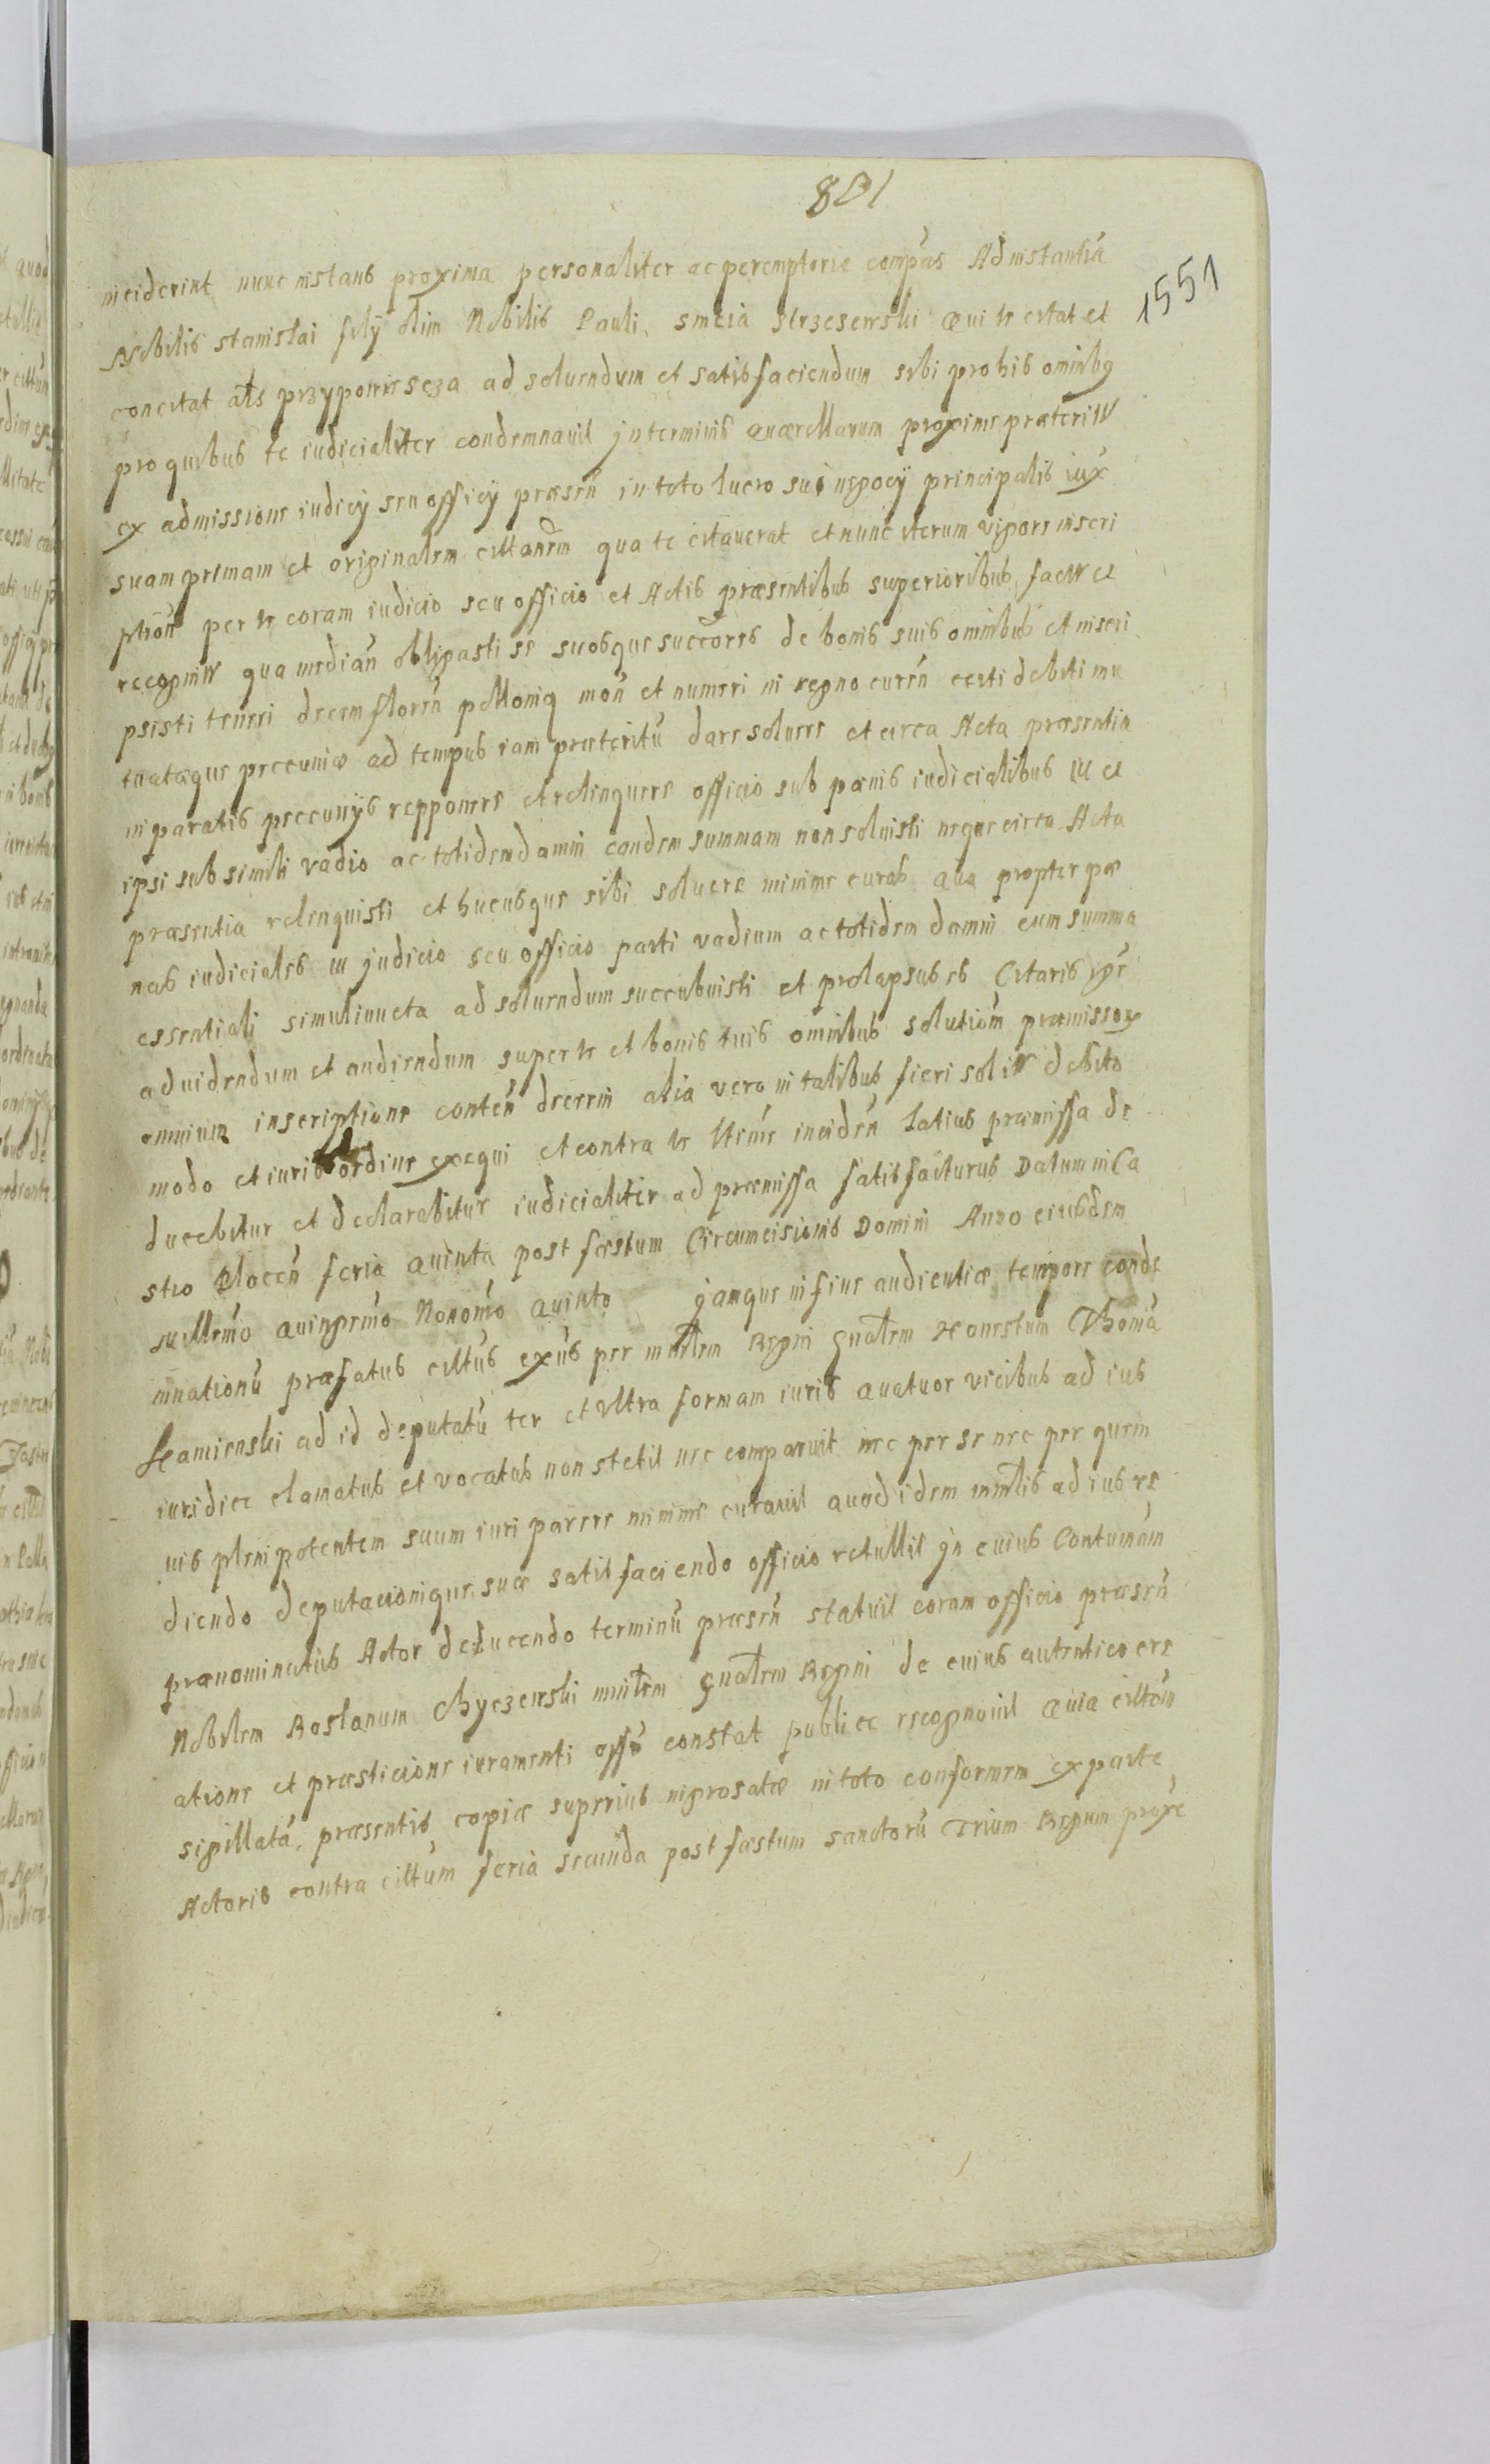 801
1551
inciderint nunc instans proxima personaliter ac peremptorie compās Ad instantiā
Nobilis stanislai filÿ olim Nobilis Pauli, smeia strzesewski qui te citat et
concitat als przypowiescza ad soluendum et satisfaciendum sibi pro his omnibq
pro quibus te iudicialiter condemnauit jn terminis quærellarum proxime præterit
ex admissione iudicÿ seu officÿ præsēn in toto lucro sui negocÿ principalis iux
suam primam et originalem cittanem qua te citauerat et nunc iterum vigore inscri
ptiōn per te coram iudicio seu officio et Actis præsentibus superioribus fact et
recognit qua mediān obligasti se suosque succores de bonis suis omnibus et inscri
psisti teneri decem florēn pollonią mōn et numeri in regno curēn certi debiti mu
tuatæque pecuniæ ad tempus iam præteritū dare soluere et circa Acta præsentia
in paratis pecunÿs repponere et relinquere officio sub pœnis iudicialibus ut et
ipsi sub simili vadio ac totidem damni eandem summam non soluisti neque circa Acta
præsentia relinquisti et hucusque sibi soluere minime curas qua propter pœ
nas iudiciales in judicio seu officio parti vadium ac totidem damni cum summa
essentiali simul iuncta ad soluendum succubuisti et prolapsus es Citaris igr
ad uidendum et audiendum super te et bonis tuis omnibus solutiōm præmissoꝝ
omnium inscriptione contēn decerni alia vero in talibus fieri solit debito
modo et iuris ordine exequi et contra te incidēn latius præmissa de
ducebitur et declarabitur iudicialiter ad præmissa satisfacturus Datum in Ca
stro Plocēn feria quinta post fæstum Circumcisionis Domini Anno eiusdem
millemo quingemo Nonomo quinto jamque in fine audientiæ tempore conde
mnationū præfatus cittus exūs per mīnlem Regni gnałem Honestum Thomā
Kamienski ad id deputatū ter et vltra formam iuris quatuor vicibus ad ius
iuridice clamatus et vocatus non stetit nec comparuit nec per se nec per quem
uis plenipotentem suum iuri parere minime curauit quod idem mīnlis ad ius re
diendo deputacionique suæ satisfaciendo officio retullit jn cuius Contumām
prænominatus Actor deducendo terminū præsēn statuit coram officio præsēn
Nobilem Roslanum Chyczewski mīnlem gnałem Regni de cuius autentico cre
atione et præsticione iuramenti offo constat publice recognouit quia cittōm
sigillatā, præsentis copiæ superius ingrosatæ in toto conformem ex parte
Actoris contra cittum feria secunda post fæstum sanctorū Trium Regum proxe